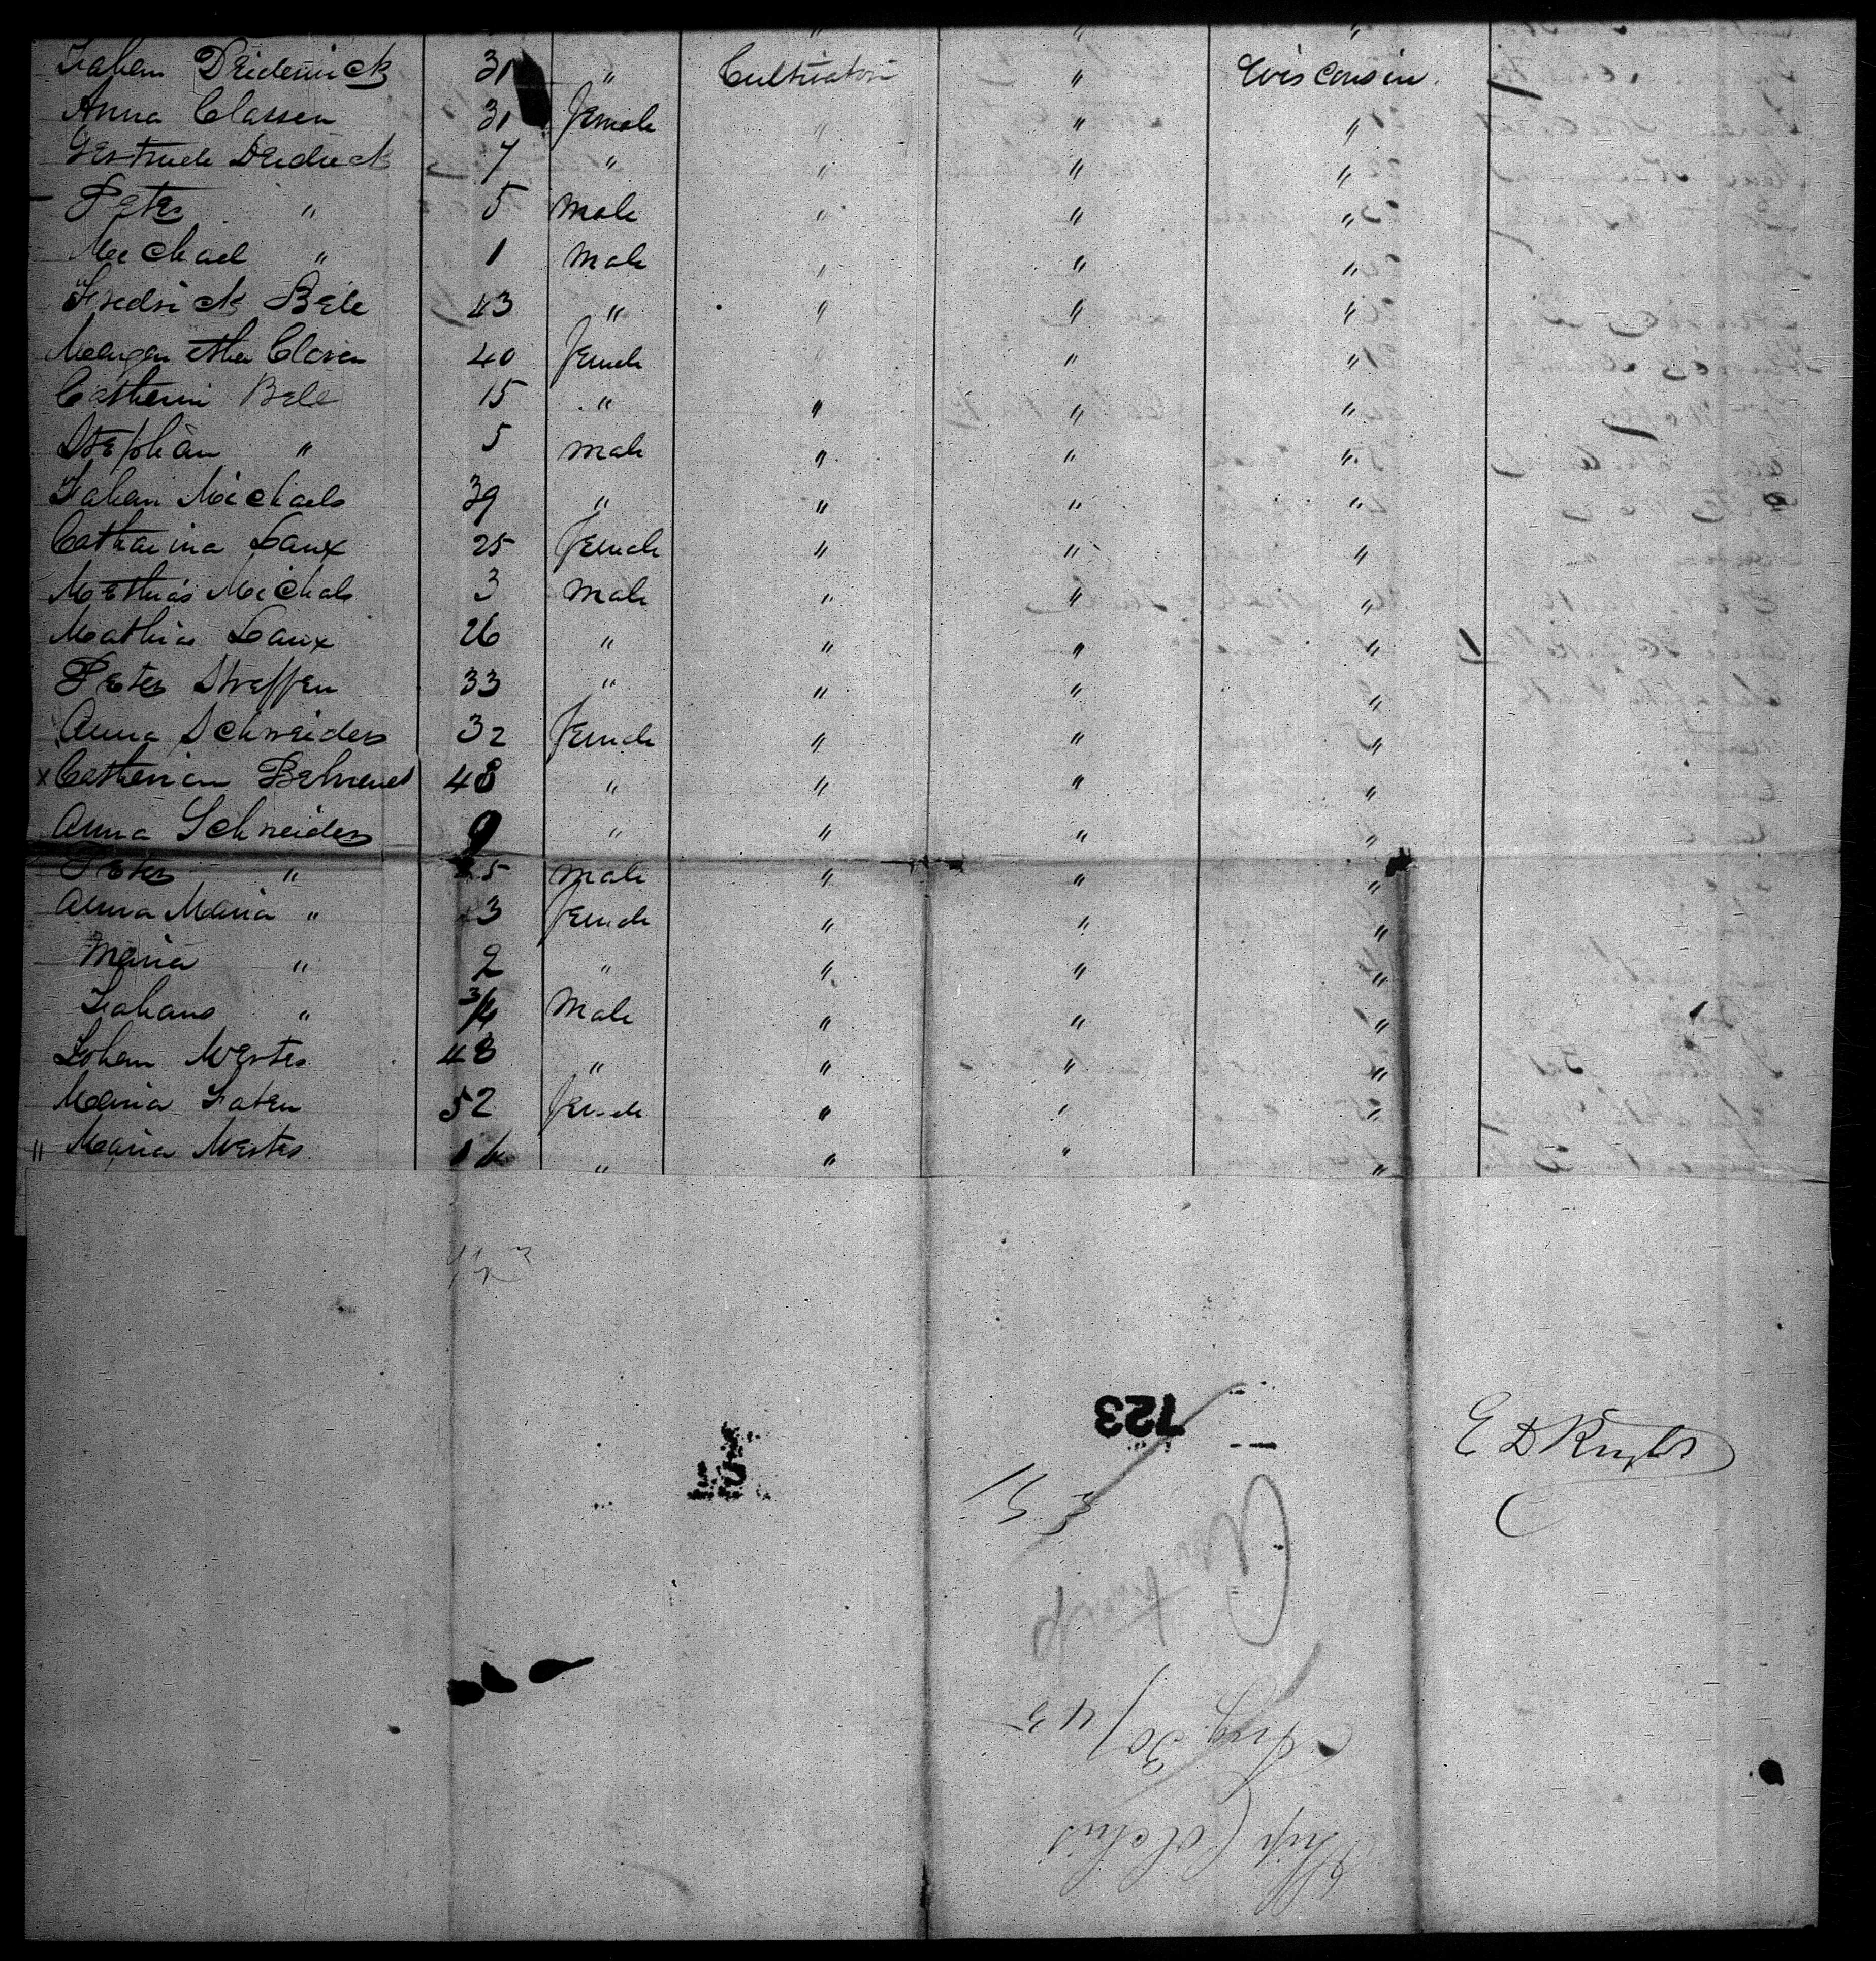 Johan Deidenrick 31 " Cultivators " Wisconsin.
Anna Classen 31 female " " "
Gertrude Deidrick 7 " " " "
Peter " 5 Male " " "
Michael " 1 Male " " "
Fredrick Bele 43 " " " "
Margaretha Clasen 40 female " " "
Catherin Bele 15 " " " "
Stephan " 5 Male " " "
Johan Michaels 39 " " " "
Catharina Laux 25 female " " "
Mathias Michals 3 Male " " "
Mathias Laux 26 " " " "
Peter Streffen 33 " " " "
Anna Schneiders 32 female " " "
x Catherian Behrened 48 " " " "
Anna Schneiders 9 " " " "
Peter " 5 Male " " "
Anna Maria " 3 female " " "
Maria " 2 " " " "
Johans " 3/4 Male " " "
Johan Mertes 48 " " " "
Maria Faten 52 female " " "
" Maria Mertes 14 " " " "
723
E D Knight
15
153
Aug 30/45
Ship Colchis